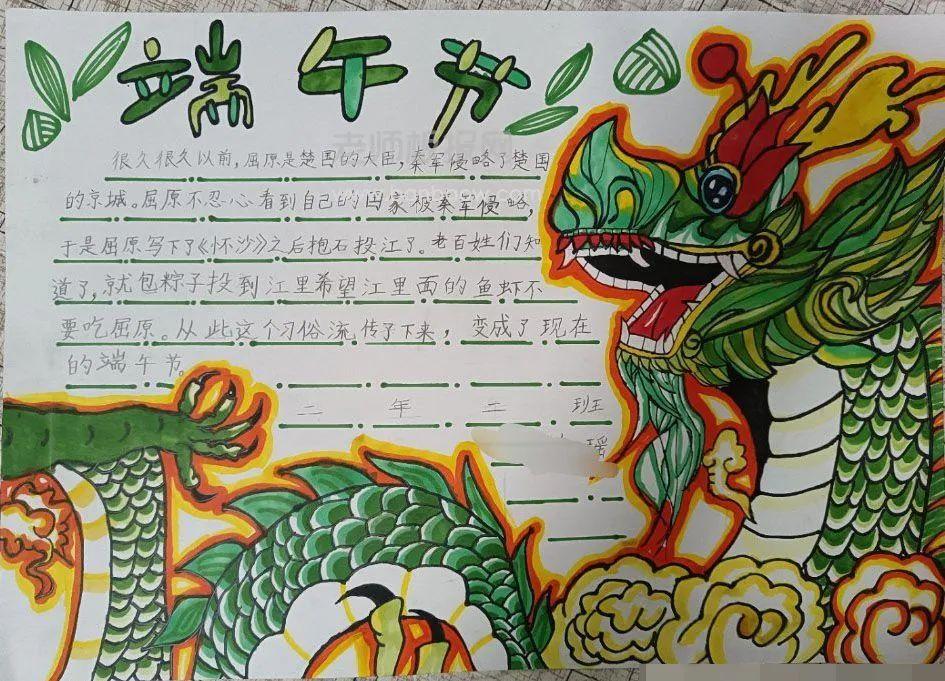 端午节
很久很久以前，屈原是楚国的大臣，秦军侵略了楚国
的京城。屈原不忍心看到自己的国家被秦军侵略，
于是屈原写下了《怀沙》之后抱石投江了。老百姓们知
道了，就包粽子投到江里希望江里面的鱼虾不
要吃屈原。从此这个习俗流传了下来，变成了现在
的端午节。
二年二班
瑶